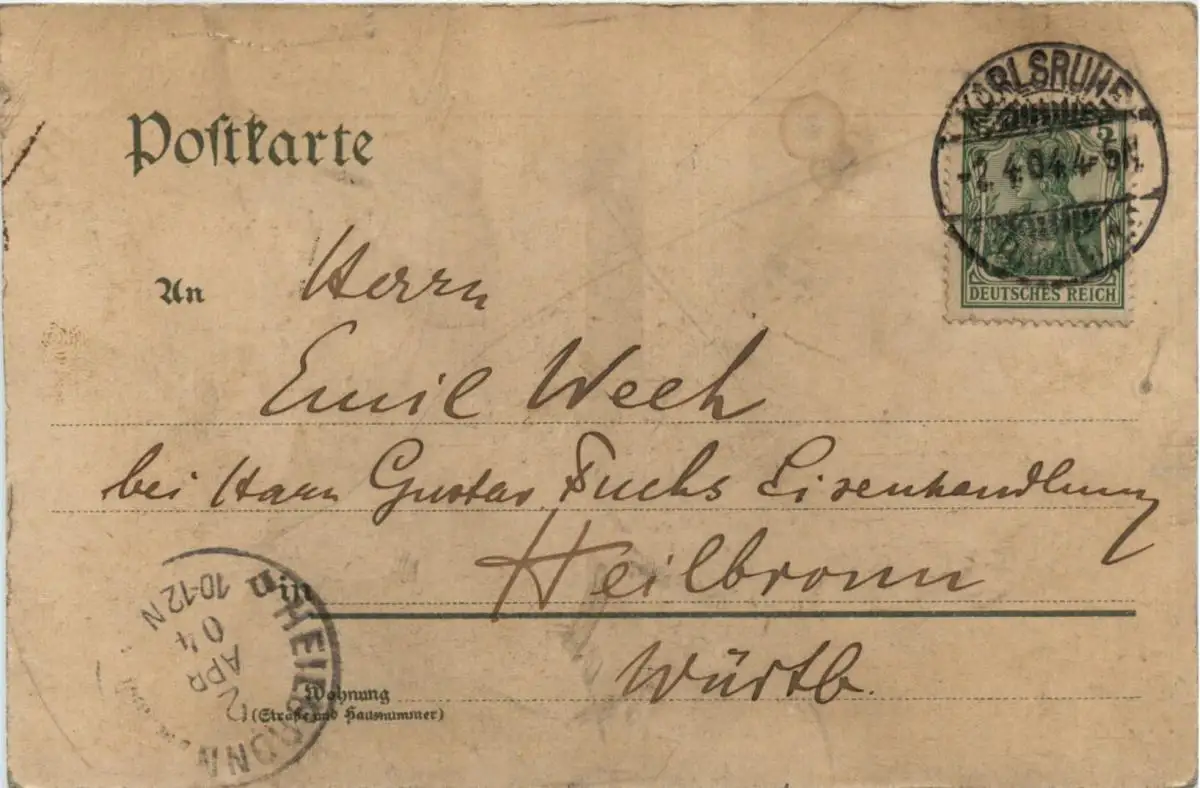 Postkarte
KARLSRUHE
-2.4.04.4-5N.
5
DEUTSCHES REICH
An Herrn
Emil Weeh
bei Herrn Gustav Fuchs Eisenhandlung
in Heilbronn
Württb.
Wohnung
(Straße und Hausnummer)
HEILBRONN
2
APR
04
10-12 N